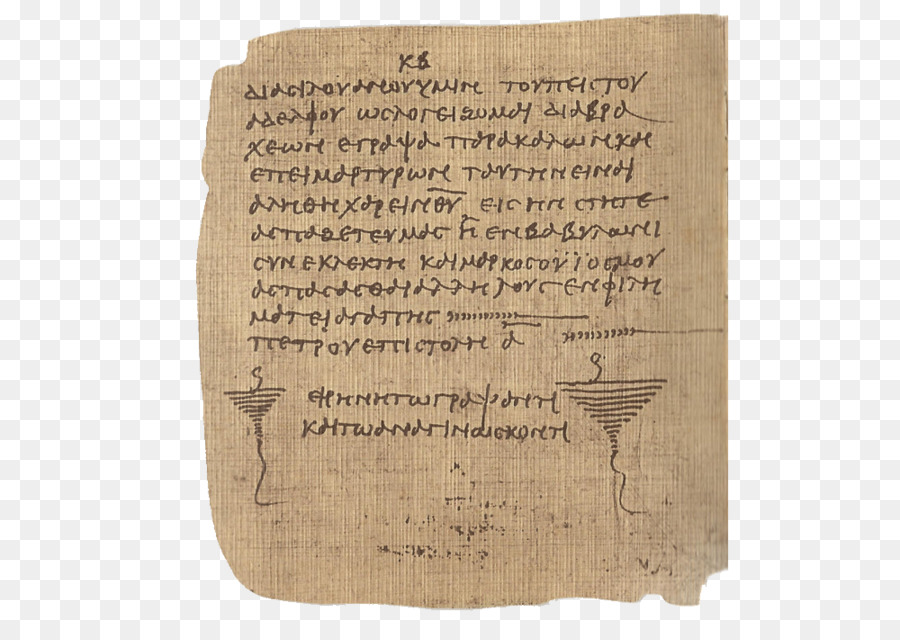 κβ
διασιλουανουυμιν τουπειστου
αδελφου ωςλογειζομαι διαβρα
χεων εγραψα παρακαλωνκαι
επειμαρτυρων ταυτηνειναι
αληθηχαρεινθυ εισηνστητε
ασπαζετευμας η ενβαβυλωνι
συνεκλεκτη καιμαρκοσοϋϊοσμου
ασπασασθαιαλληλουσενφιλη
ματειαγαπης
πετρουεπιστολη α
ειρηνητωγραψαντι
καιτωαναγινωσκοντι